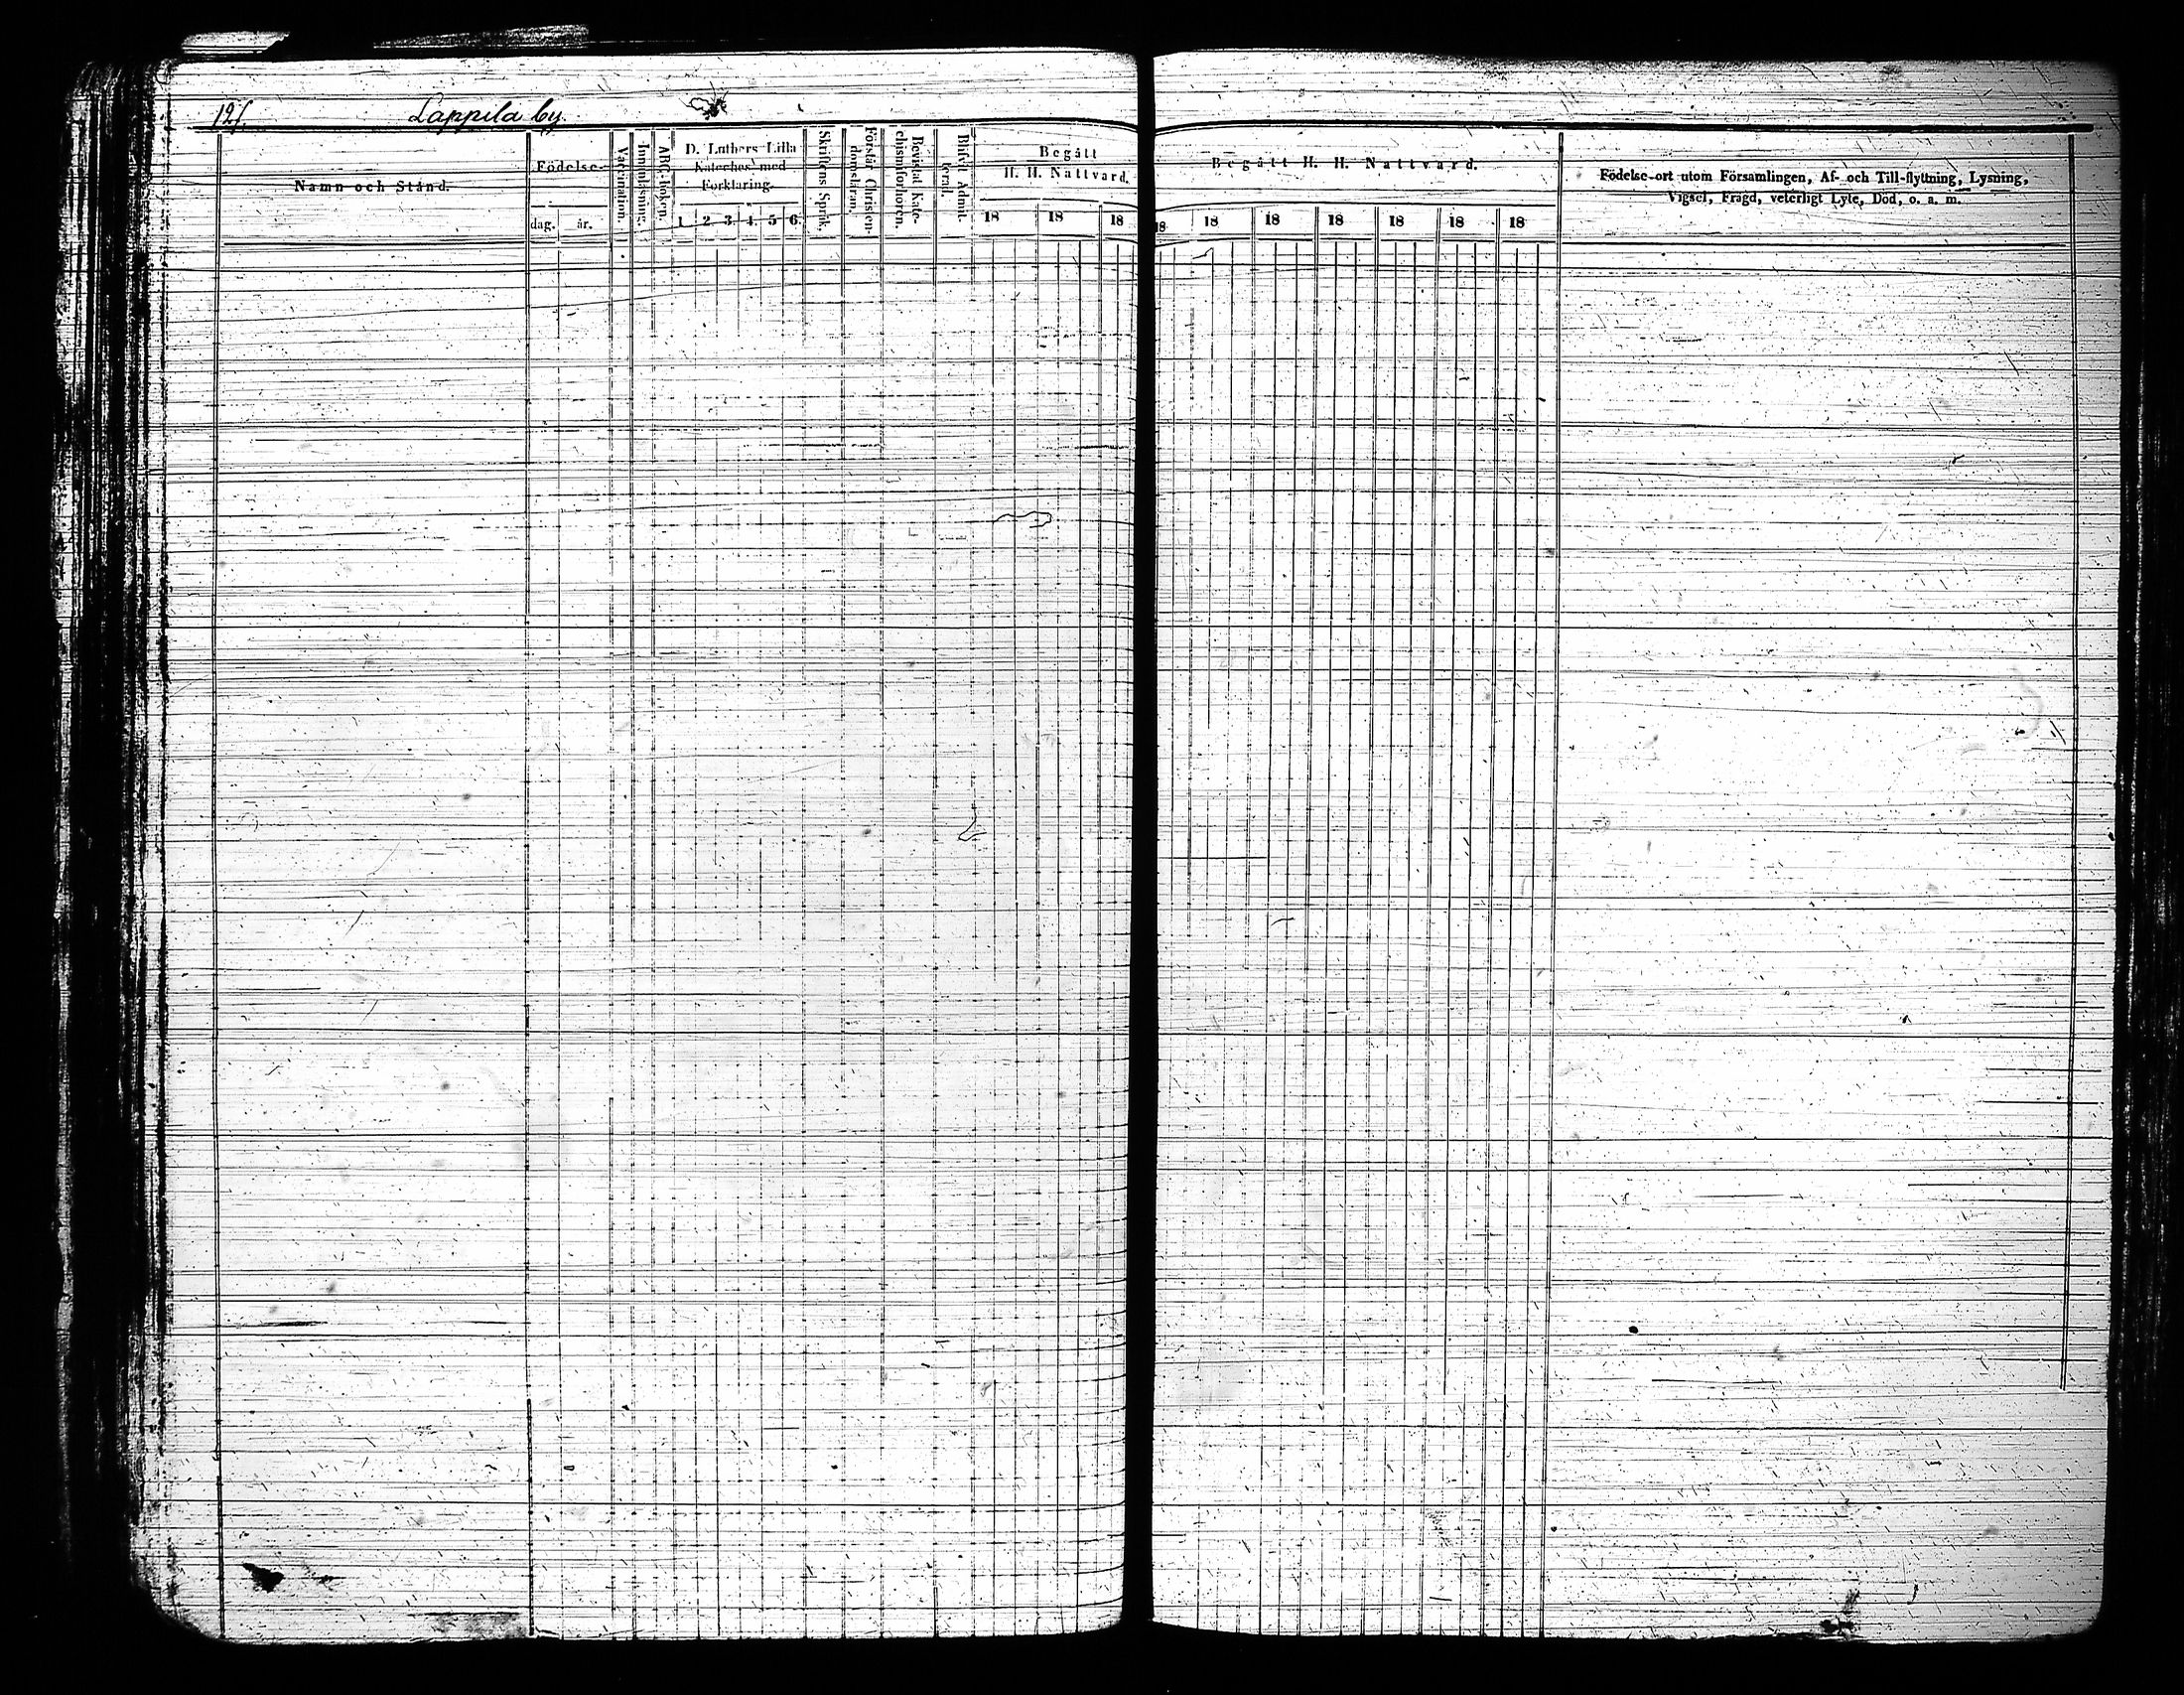 Lappila by.
Namn och Stånd.
Födelse-
dag. år.
Vaccination.
Innanläsning.
ABC-boken.
D. Luthers Lilla
Kateches med
Förklaring.
1. 2. 3. 4. 5. 6.
Skriftens Språk.
Förstår Christen-
domsläran.
Bevistat Kate-
chismiförhören.
Blifvit Admit-
terad.
Begått
H. H. Nattvard.
18 18 18
Begått H. H. Nattvard.
18 18 18 18 18 18 18
Födelse-ort utom Församlingen, Af- och Till-flyttning, Lysning,
Vigsel, Frägd, veterligt Lyte, Död, o. a. m.